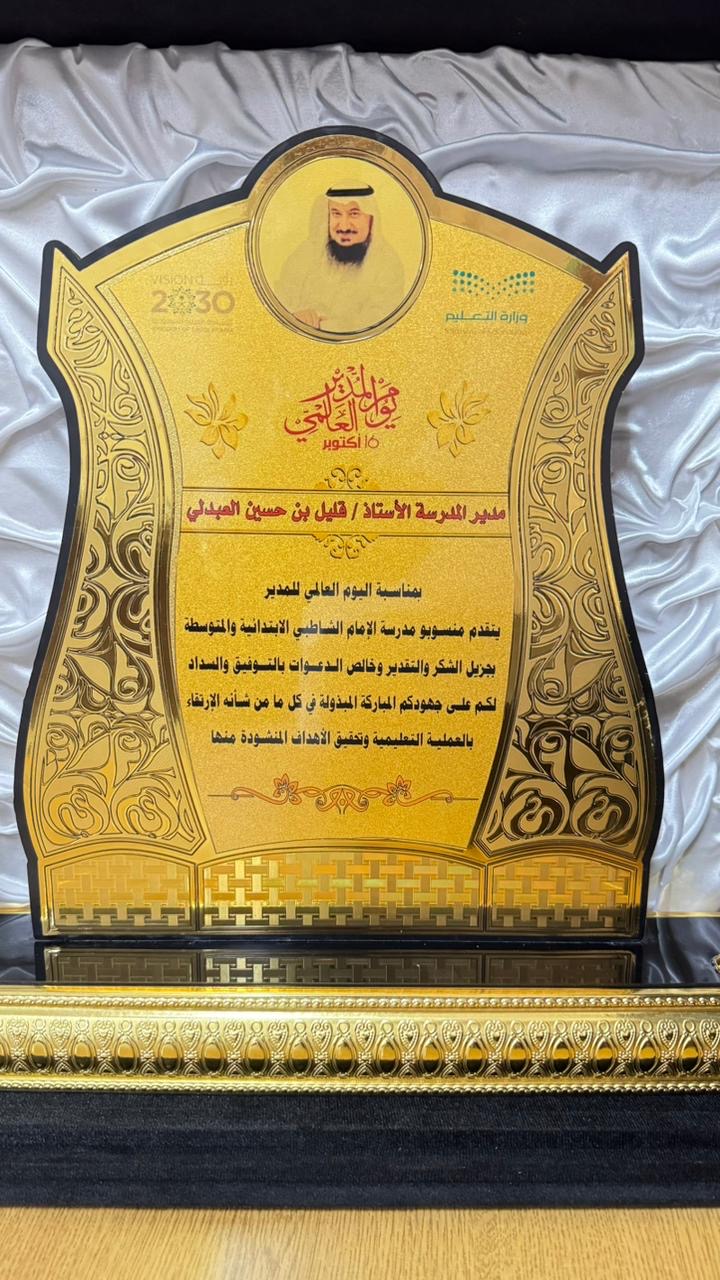 VISION رؤية
2030
وزارة التعليم
يوم المدير
العالمي
16 أكتوبر
مدير المدرسة الأستاذ / قليل بن حسين العبدلي
بمناسبة اليوم العالمي للمدير
يتقدم منسوبو مدرسة الإمام الشاطبي الابتدائية والمتوسطة
بجزيل الشكر والتقدير وخالص الدعوات بالتوفيق والسداد
لكم على جهودكم المباركة المبذولة في كل ما من شأنه الإرتقاء
بالعملية التعليمية وتحقيق الأهداف المنشودة منها